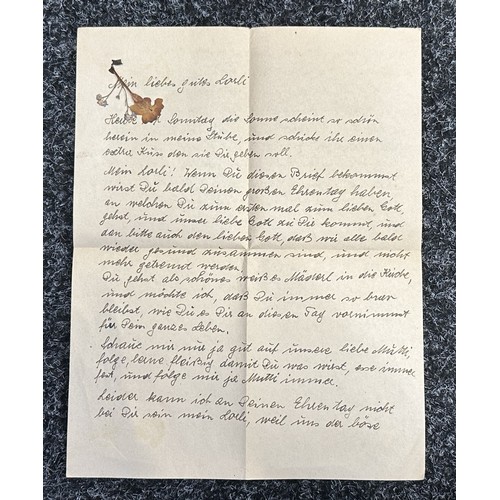 Mein liebes gutes Lorli
Heute ist Sonntag die Sonne scheint so schön
herein in meine Stube, und schicke ihr einen
extra Kuss den sie Dir geben soll.
Mein Lorli! Wenn Du diesen Brief bekommst
wirst Du bald Deinen großen Ehrentag haben
an welchen Du zum ersten mal zum lieben Gott,
gehst, und unser liebe Gott zu Dir kommt, und
dan bitte auch den lieben Gott, daß wir alle bald
wieder gesund zusammen sind, und nicht
mehr getrennt werden
Du gehst als schönes weißes Mäderl in die
und möchte ich, daß Du immer so brav
bleibst, wie Du es Dir an diesen Tag vornimmst
für Dein ganzes Leben.
Schaue mir nur ja gut auf unsere liebe Mutti,
folge, lerne fleißig damit Du was wirst, esse immer
fest, und folge mir ja Mutti immer.
Leider kann ich an Deinen Ehrentag nicht
bei Dir sein mein Lorli, weil uns der böse